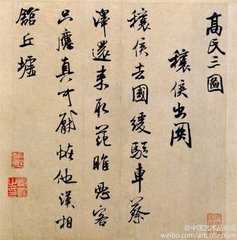 高氏三圖
穰侯出関
穰侯去國緩驅車蔡
澤還来取范雎惡客
只應真可厭惟他漢相
館丘墟
@中国艺术品收藏
weibo.com/artcollection